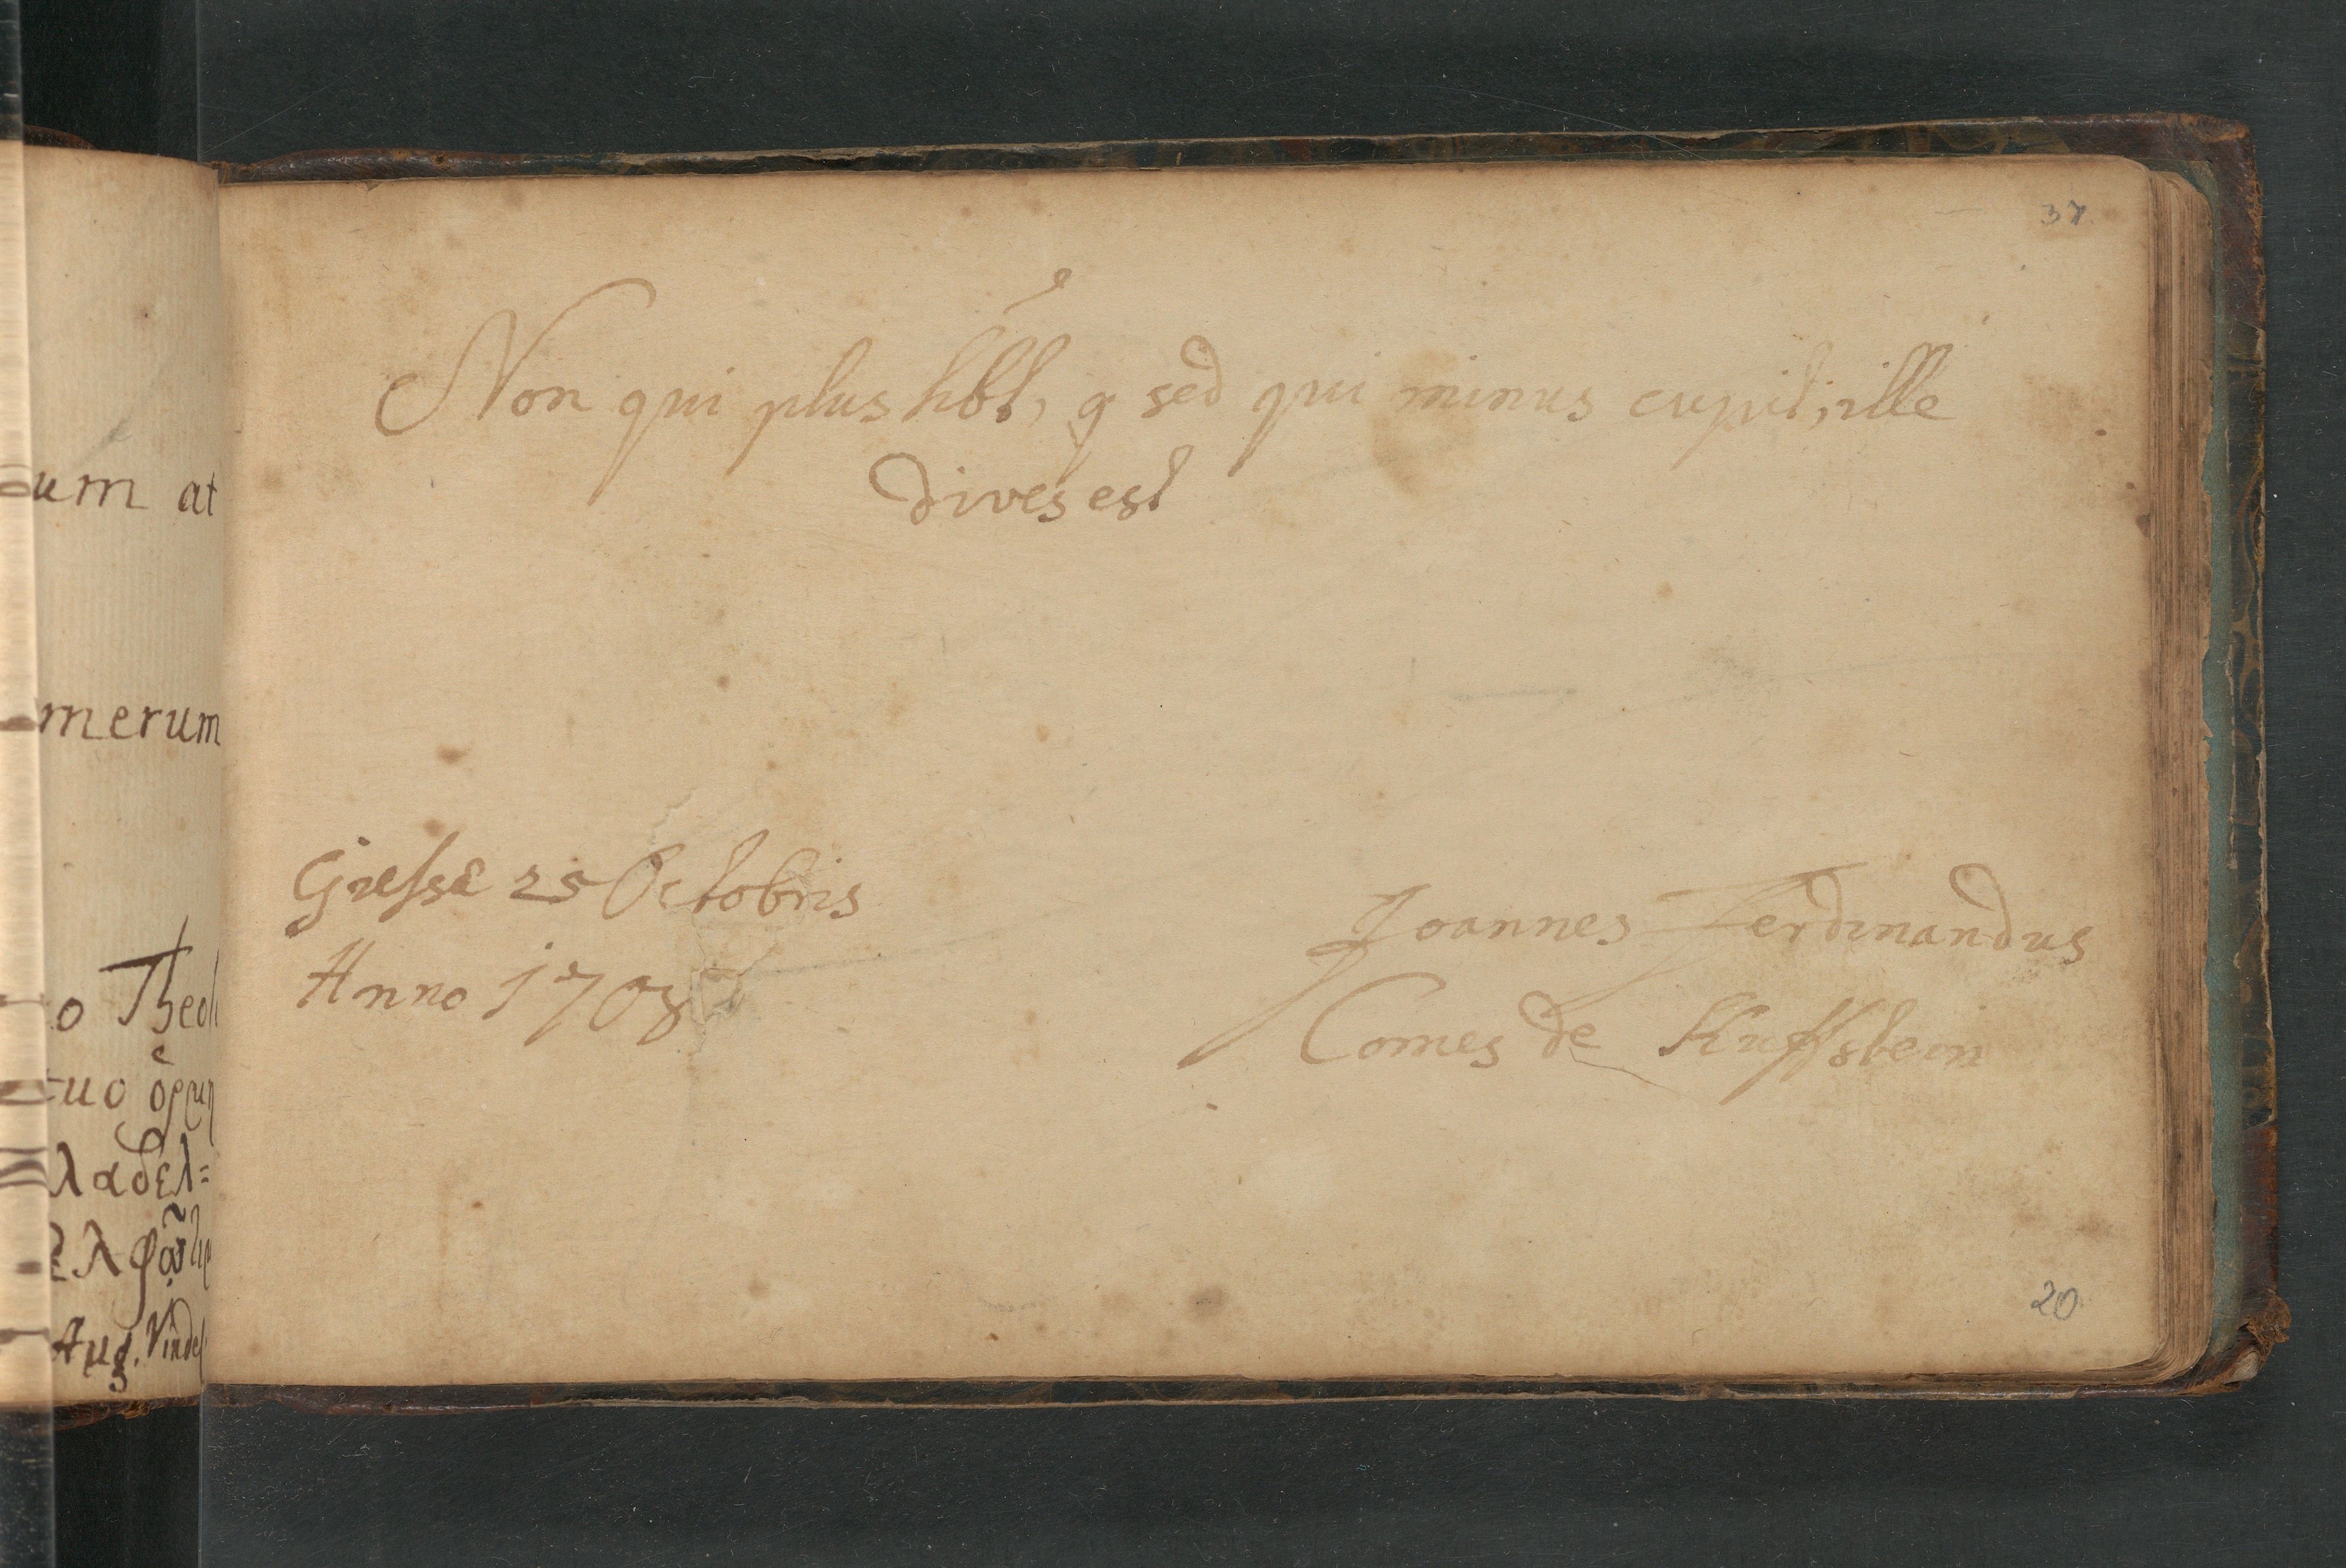 um at
merum
o Theol
tuo
λαδελ=
ελφῷ
Aug. Vindel
37
Non qui plus hbt, q sed qui minus cupit, ille
dives est
Giessæ 25 Octobris
Anno 1708
Joannes Ferdinandus
Comes de Kuffstein
20